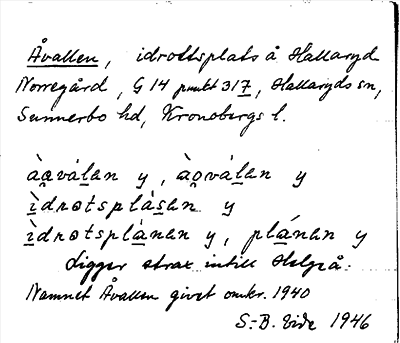 Åvallen, idrottsplats å Hallaryd
Norregård, G 14 punkt 317, Hallaryds sn,
Sunnerbo hd, Kronobergs l.
àa̯válen y, ào̯válen y
ìdrotsplàsen y
ìdrotsplànen y, plánen y
Ligger strax intill Helgeå.
Namnet Åvallen givet omkr. 1940
S.-B. Vide 1946